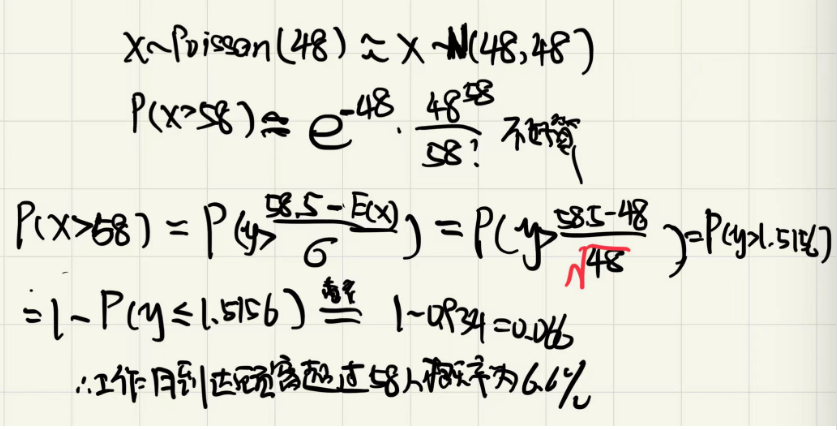 X~Poisson(48) ≈ X~N(48,48)
P(X>58) ≈ e^-48 · 48^58/58! 不好算
P(X>58) = P(y> (58.5-E(X))/6) = P(y> (58.5-48)/√48) = P(y>1.5156)
= 1-P(y≤1.5156) 查表= 1-0.934=0.066
∴工作日到达顾客超过58人概率为6.6%